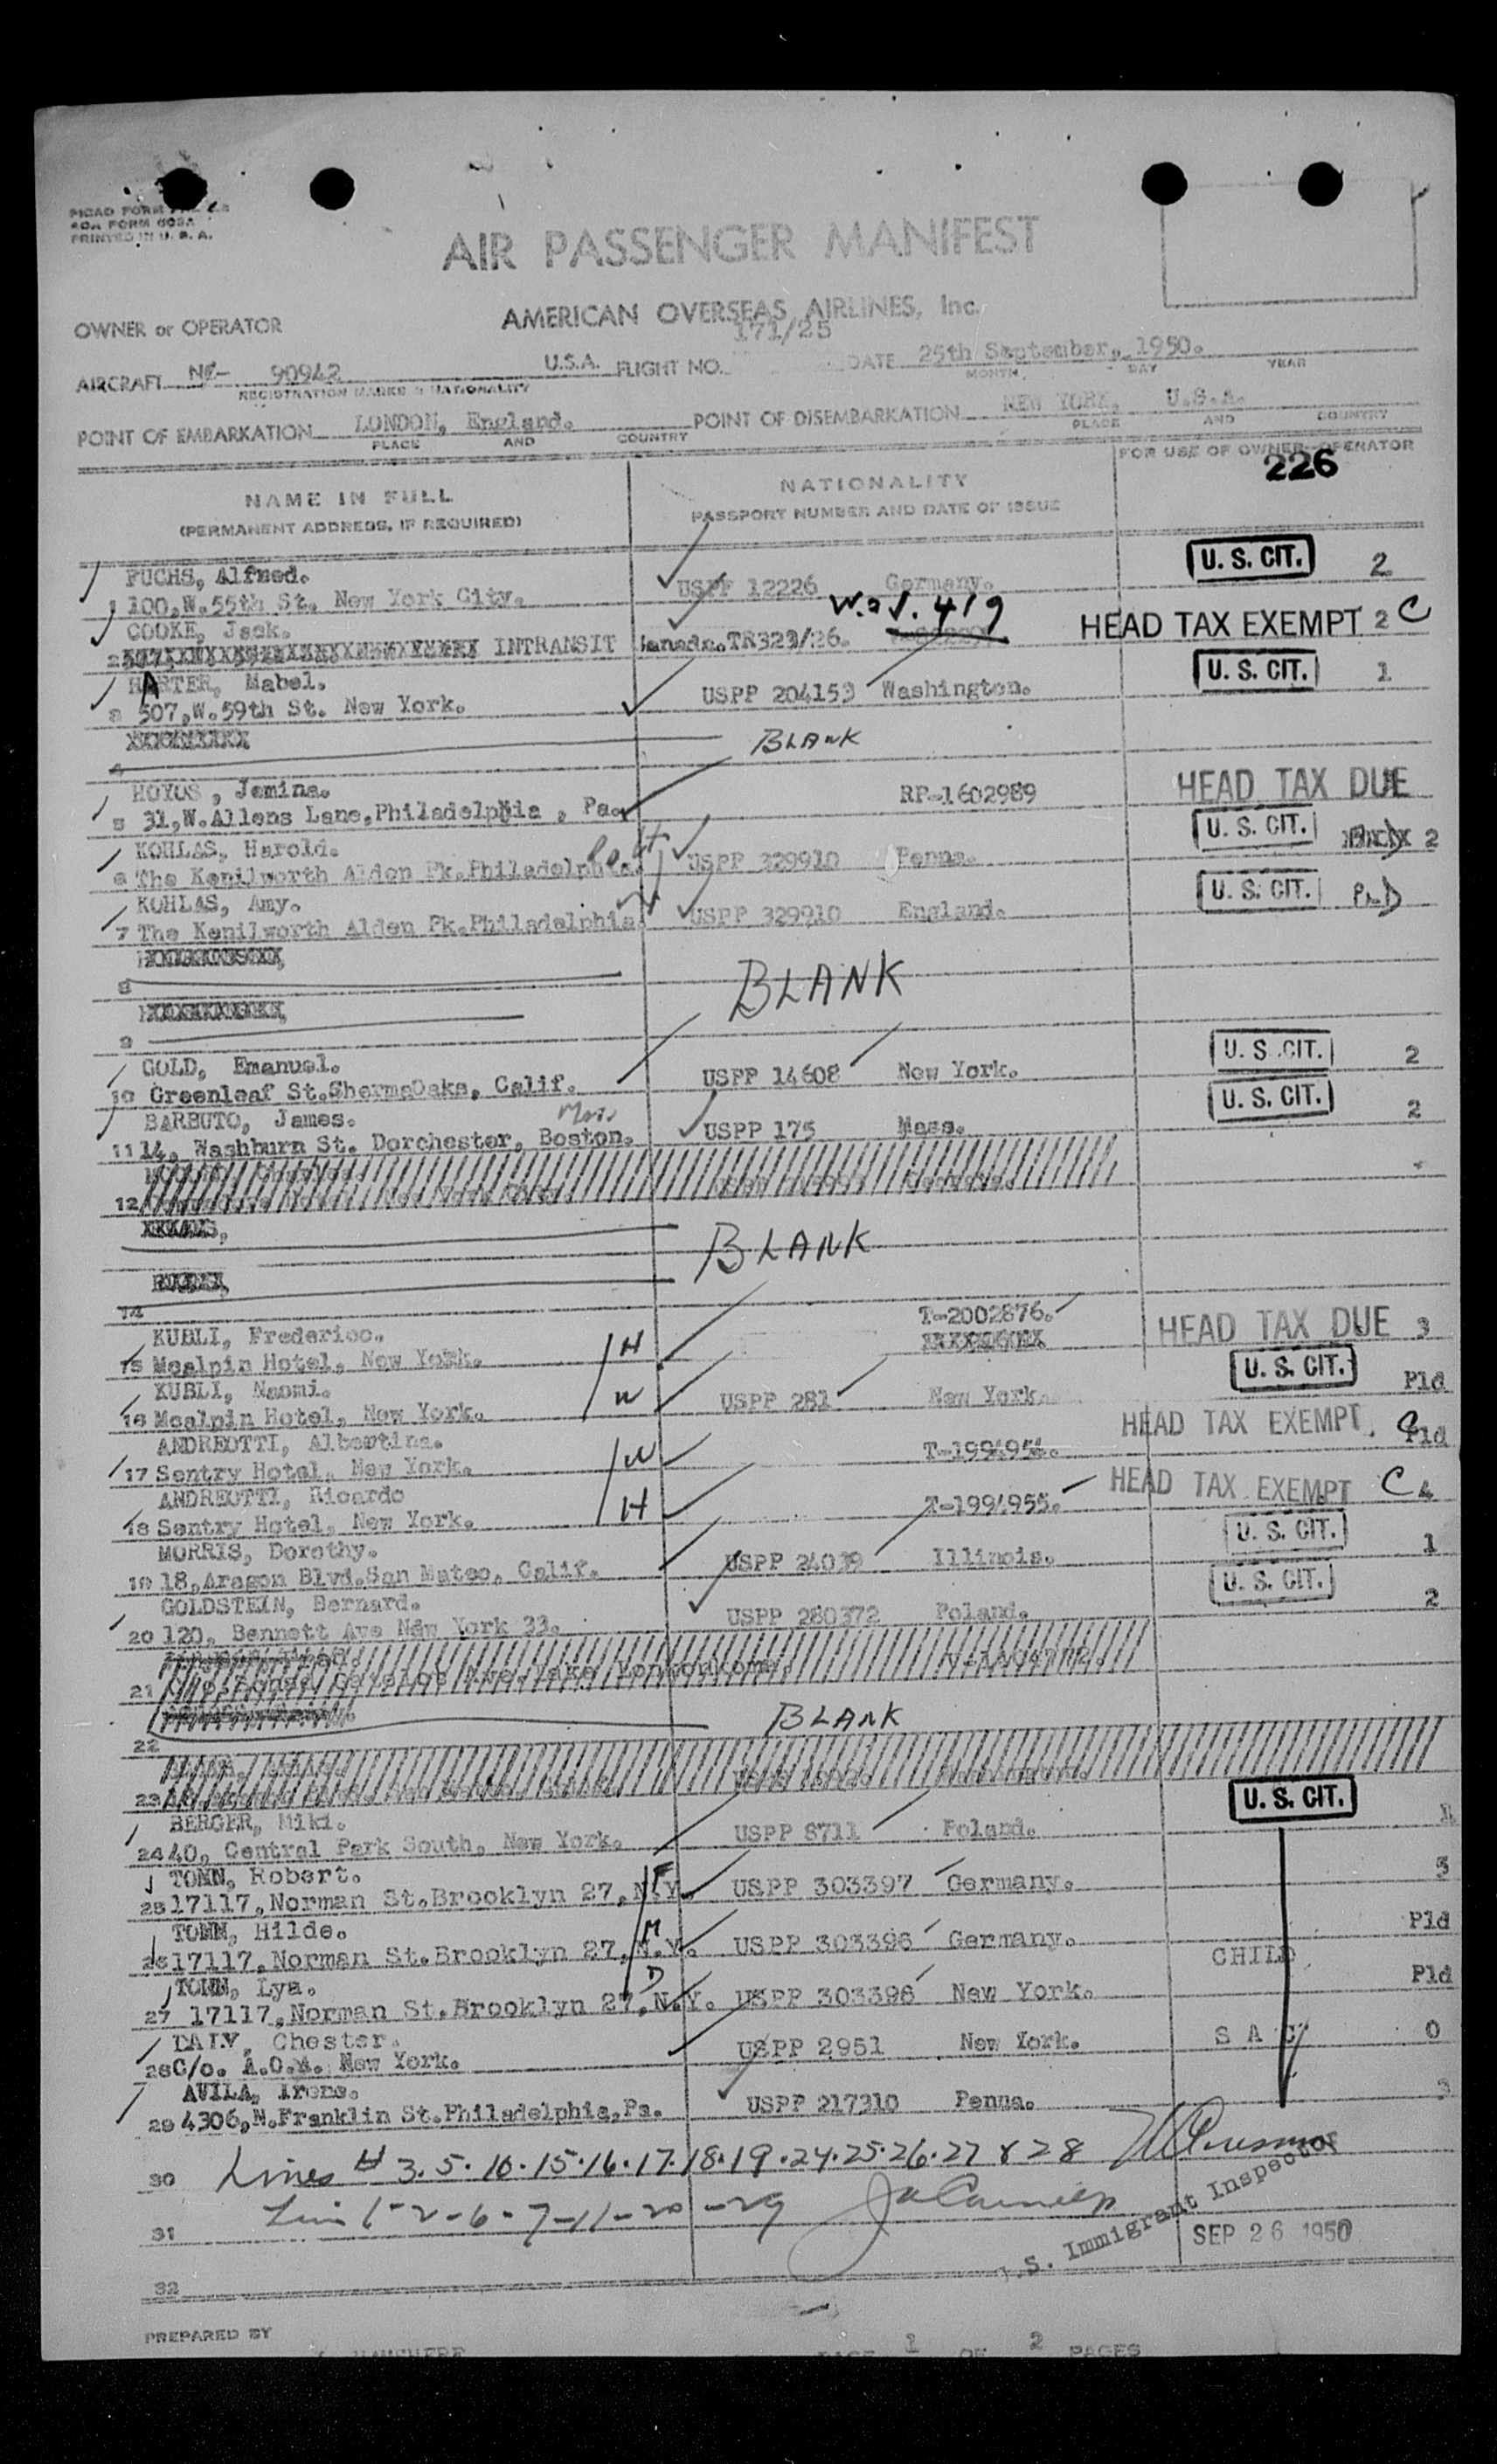 PICAO FORM
AOA FORM 603A
PRINTED IN U. S. A.
AIR PASSENGER MANIFEST
OWNER or OPERATOR AMERICAN OVERSEAS AIRLINES, Inc.
171/25
AIRCRAFT 90942 U.S.A. FLIGHT NO. DATE 25th September, 1950.
REGISTRATION MARKS & NATIONALITY MONTH DAY YEAR
POINT OF EMBARKATION LONDON, England. POINT OF DISEMBARKATION NEW YORK, U.S.A.
PLACE AND COUNTRY PLACE AND COUNTRY
FOR USE OF OWNER OPERATOR
226
NAME IN FULL NATIONALITY
(PERMANENT ADDRESS, IF REQUIRED) PASSPORT NUMBER AND DATE OF ISSUE
FUCHS, Alfred. U. S. CIT. 2
1 100,W.55th St. New York City. USPP 12226 Germany.
COOKE, Jack. W.J. 419 HEAD TAX EXEMPT 2 C
2 INTRANSIT Canada.TR323/26.
HARTER, Mabel. U. S. CIT. 1
3 507,W.59th St. New York. USPP 204153 Washington.
BLANK
4
HOYOS, Jemina. RP-1602989 HEAD TAX DUE
5 31,W.Allens Lane,Philadelphia, Pa.
KOHLAS, Harold. U. S. CIT. 2
6 The Kenilworth Alden Pk.Philadelphia. USPP 329910 Penna.
KOHLAS, Amy. U. S. CIT. PLD
7 The Kenilworth Alden Pk.Philadelphia. USPP 329910 England.
8
BLANK
9
GOLD, Emanuel. U. S. CIT. 2
10 Greenleaf St.ShermaOaks, Calif. USPP 14608 New York.
BARBUTO, James. Mass U. S. CIT. 2
11 14, Washburn St. Dorchester, Boston. USPP 175 Mass.
12
BLANK
14
KUBLI, Frederico. H T-2002876. HEAD TAX DUE 3
15 Mcalpin Hotel, New York.
KUBLI, Naomi. W U. S. CIT. Pld
16 Mcalpin Hotel, New York. USPP 281 New York.
ANDREOTTI, Albertina. W T-1994954. HEAD TAX EXEMPT. C Pld
17 Sentry Hotel, New York.
ANDREOTTI, Ricardo H T-1994955. HEAD TAX EXEMPT C 4
18 Sentry Hotel, New York.
MORRIS, Dorothy. U. S. CIT. 1
19 18,Aragon Blvd.San Mateo, Calif. USPP 24039 Illinois.
GOLDSTEIN, Bernard. U. S. CIT. 2
20 120, Bennett Ave New York 33. USPP 280372 Poland.
21
BLANK
22
23
BERGER, Miki. U. S. CIT.
24 40, Central Park South, New York. USPP 8711 Poland.
TOMN, Robert. F 3
25 17117,Norman St.Brooklyn 27,N.Y. USPP 303397 Germany.
TOMN, Hilde. M Pld
26 17117,Norman St.Brooklyn 27,N.Y. USPP 303396 Germany.
TOMN, Lya. D CHILD Pld
27 17117,Norman St.Brooklyn 27,N.Y. USPP 303396 New York.
DALY, Chester. S A C 0
28 C/o. A.O.A. New York. USPP 2951 New York.
AVILA, Irene. 3
29 4306,N.Franklin St.Philadelphia,Pa. USPP 217310 Penna.
30 Lines # 3.5.10.15.16.17.18.19.24.25.26.27 & 28
31 1-2-6-7-11-20-29
U.S. Immigrant Inspector
SEP 26 1950
32
PREPARED BY
PAGE 1 OF 2 PAGES